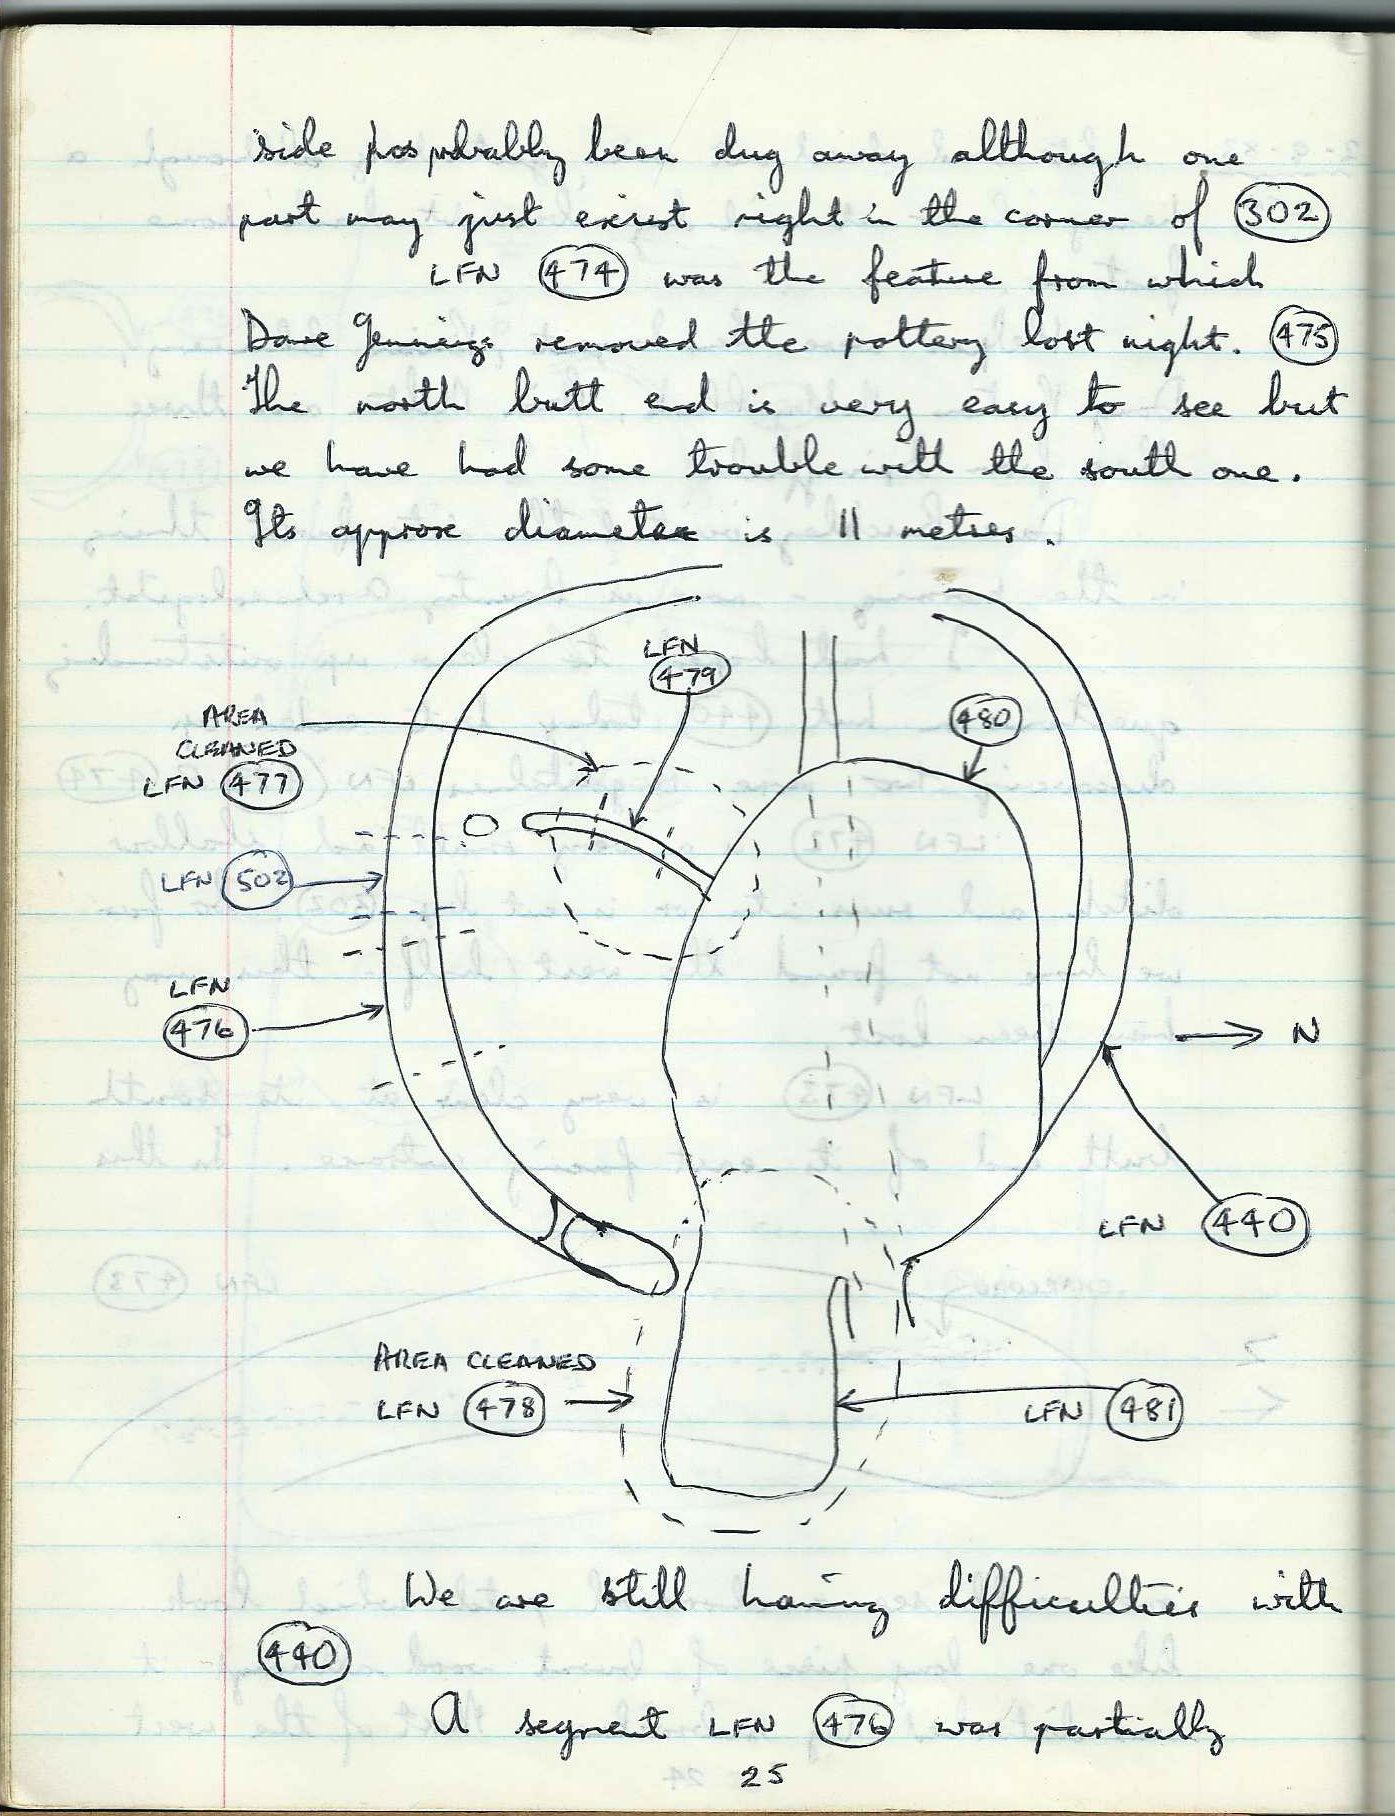 side has probably been dug away although one
part may just exist right in the corner of 302
LFN 474 was the feature from which
Dave Jennings removed the pottery last night. 475
The north butt end is very easy to see but
we have had some trouble with the south one.
Its approx diameter is 11 metres.
LFN
479
AREA
CLEANED
LFN 477
480
LFN 502
LFN
476
N
LFN 440
AREA CLEANED
LFN 478
LFN 481
We are still having difficulties with
440
A segment LFN 476 was partially
25